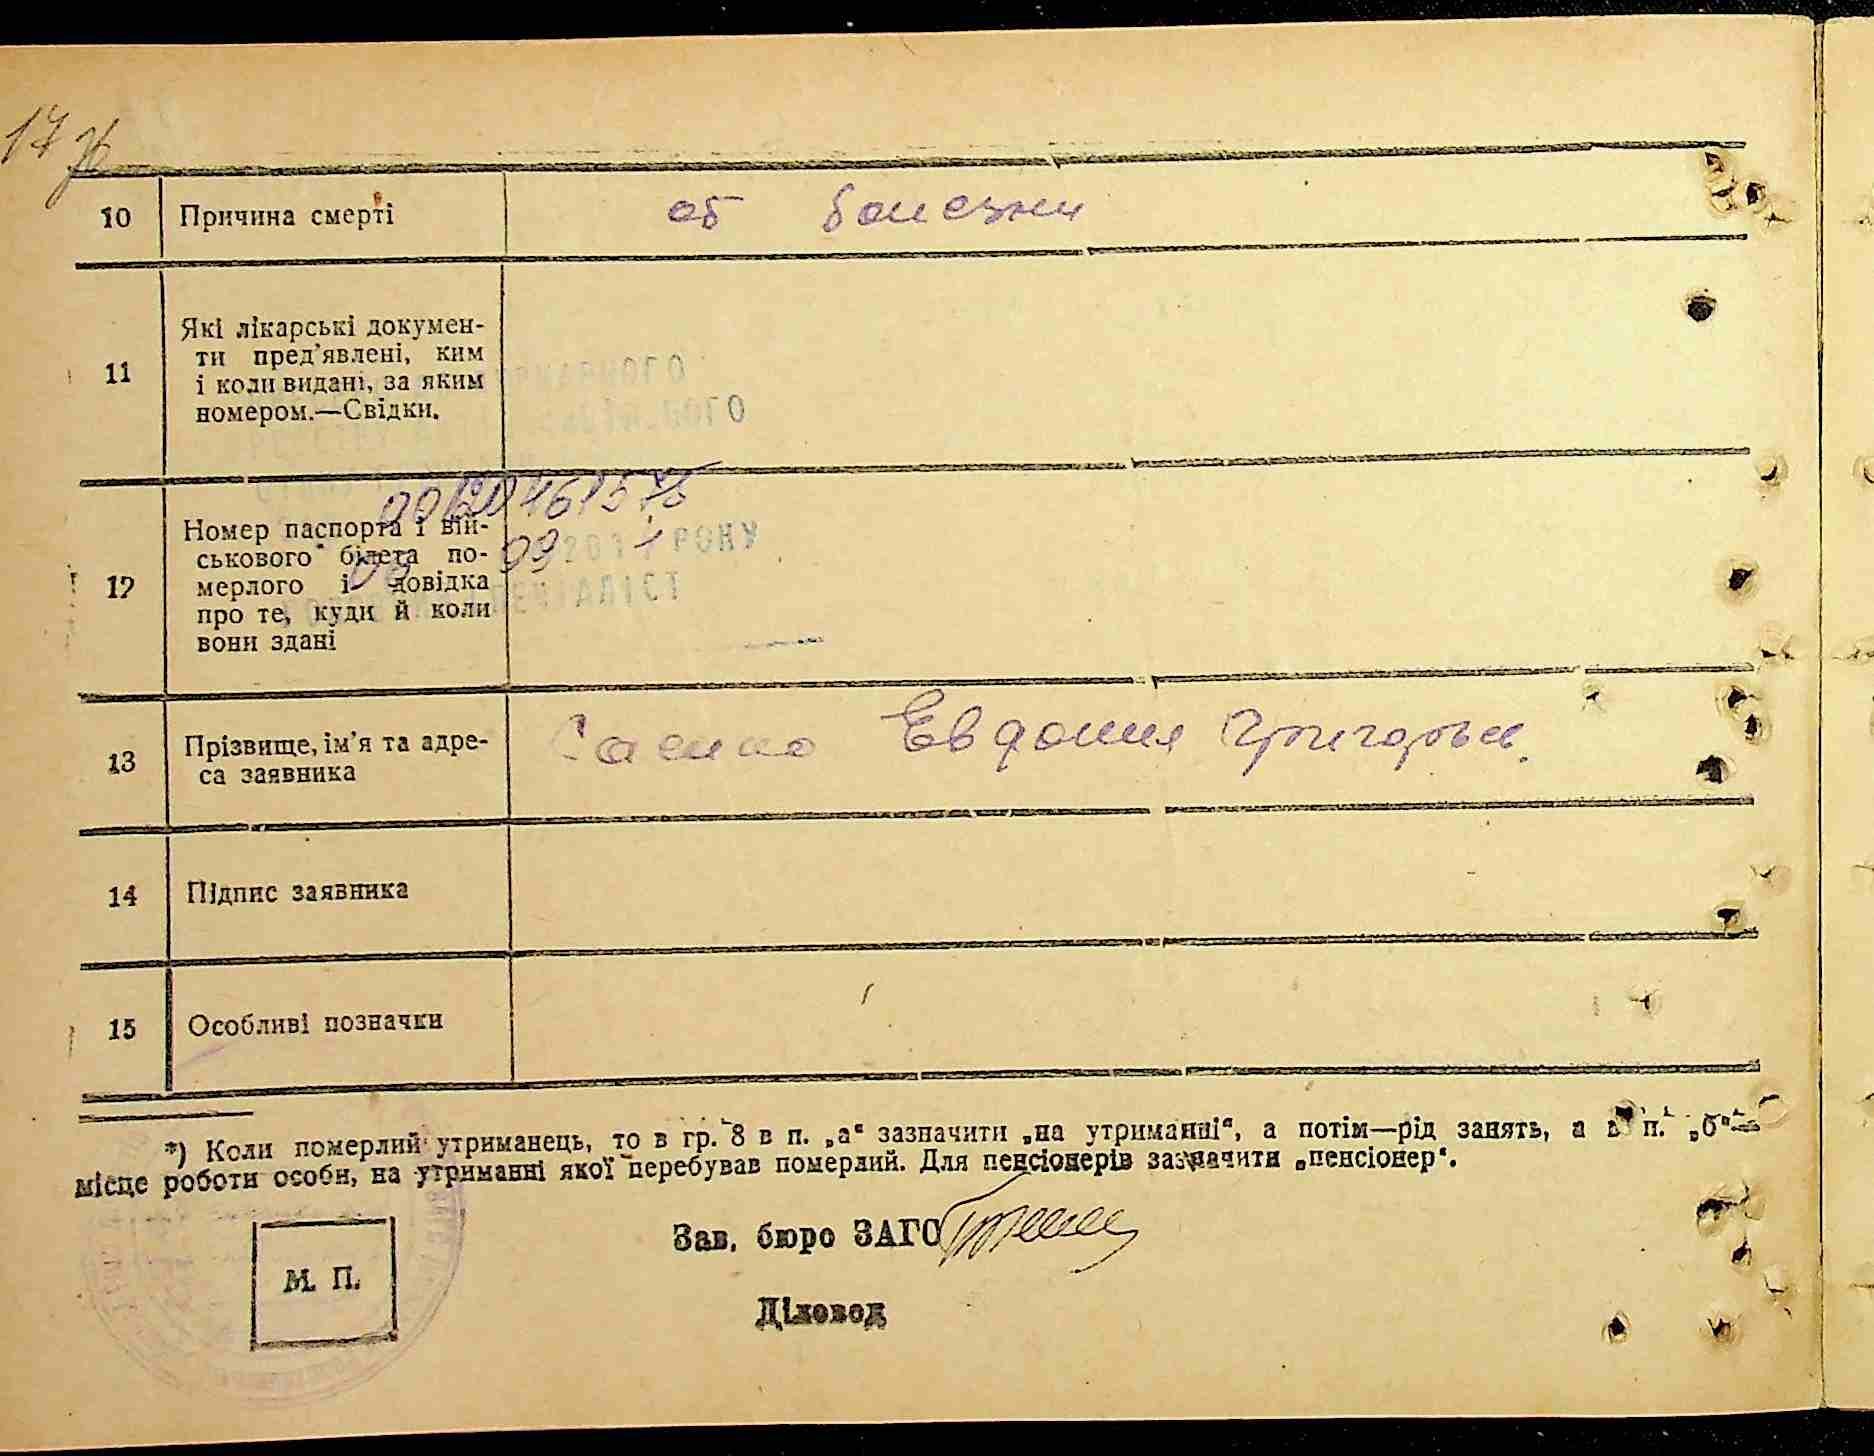 17
10 Причина смерті об болезни
11 Які лікарські докумен-
ти пред’явлені, ким
і коли видані, за яким
номером.—Свідки.
12 Номер паспорта і вій-
ськового білета по-
мерлого і довідка
про те, куди й коли
вони здані
РОКУ
13 Прізвище, ім’я та адре-
са заявника
Евдокия Григорьев.
14 Підпис заявника
15 Особливі позначки
*) Коли померлий утриманець, то в гр. 8 в п. „а“ зазначити „на утриманні“, а потім—рід занять, а в п. „б“—
місце роботи особи, на утриманні якої перебував померлий. Для пенсіонерів зазначити „пенсіонер“.
Зав. бюро ЗАГС
М. П.
Діловод